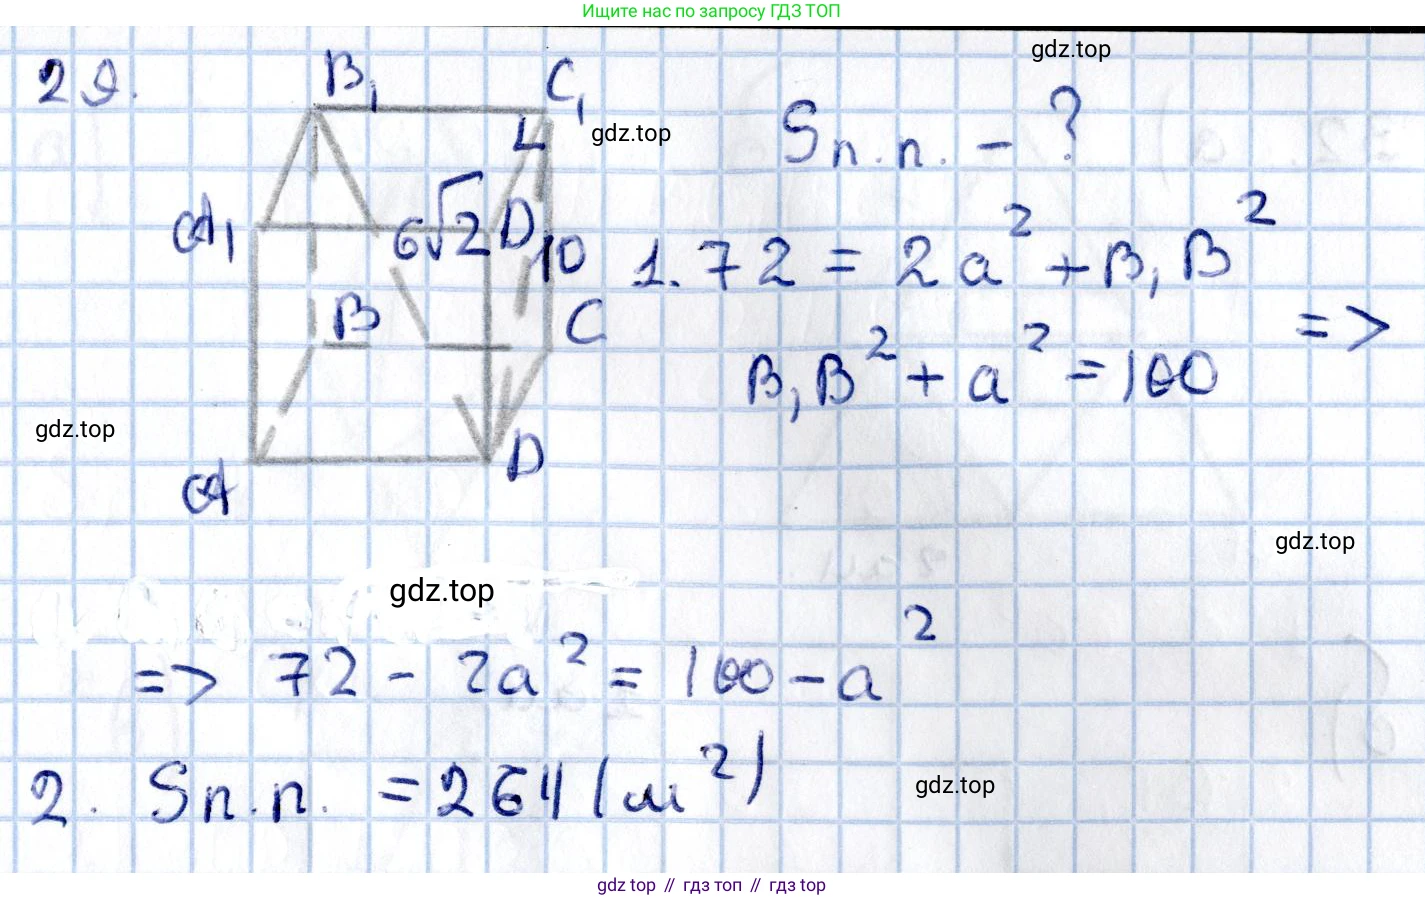 Ищите нас по запросу ГДЗ ТОП
gdz.top
29.
B₁
C₁
gdz.top
Sп.п. - ?
A₁
6√2
D₁
10
1. 72 = 2a² + B₁B²
B
C
B₁B² + a² = 100
=>
gdz.top
A
D
gdz.top
gdz.top
=> 72 - 2a² = 100 - a²
2. Sп.п. = 264 (м²)
gdz.top
gdz top // гдз топ // gdz top